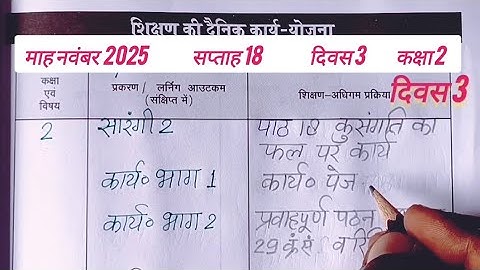 शिक्षण की दैनिक कार्य-योजना
माह नवंबर 2025 सप्ताह 18 दिवस 3 कक्षा 2
दिवस 3
कक्षा एवं विषय
प्रकरण / लर्निंग आउटकम (संक्षिप्त में)
शिक्षण-अधिगम प्रक्रिया
2 सारंगी 2 पाठ 18 कुसंगति का
फल पर कार्य
कार्य० भाग 1 कार्य० पेज
कार्य० भाग 2 प्रवाहपूर्ण पठन
29 क्र.सं. व